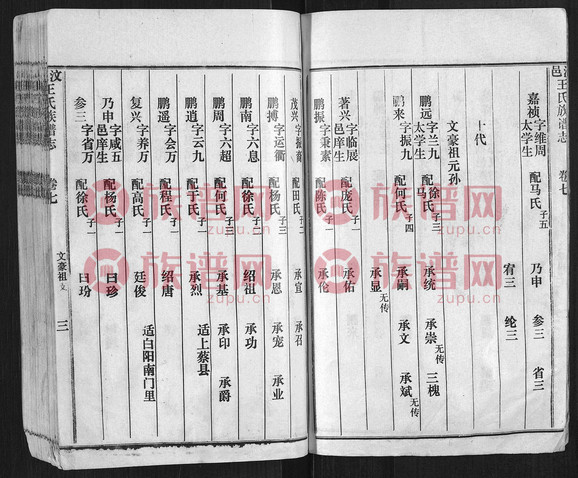 邑
汶王氏族谱志 卷七
嘉祯 字维周 太学生 配马氏 子五 乃申 参三 省三
宥三 纶三
十代
文豪祖元孙
鹏远 字兰九 太学生 配徐氏 马氏 子三 承统 承崇 无传 三槐
鹏来 字振九 配何氏 子四 承嗣 承文 承斌 无传
承显 无传
著兴 字临展 邑庠生 配庞氏 子一 承佑
鹏振 字秉素 配陈氏 子一 承伦
茂兴 字振斋 配田氏 子二 承宣 承召
鹏搏 字运衢 配杨氏 子三 承恩 承宠 承业
鹏南 字六息 配徐氏 子二 绍祖 承功
鹏周 字六超 配何氏 子三 承基 承印 承爵
鹏逍 字云九 配于氏 子一 承烈 适上蔡县
鹏遥 字会万 配程氏 子一 绍唐
复兴 字养万 配高氏 子一 廷俊 适白阳南门里
乃申 字咸五 邑庠生 配杨氏 子一 曰珍
参三 字省万 配徐氏 子一 曰玢
汶王氏族谱志 卷七 文豪祖 文 三
族谱网
zupu.cn
族谱网
zupu.cn
族谱网
zupu.cn
族谱网
zupu.cn